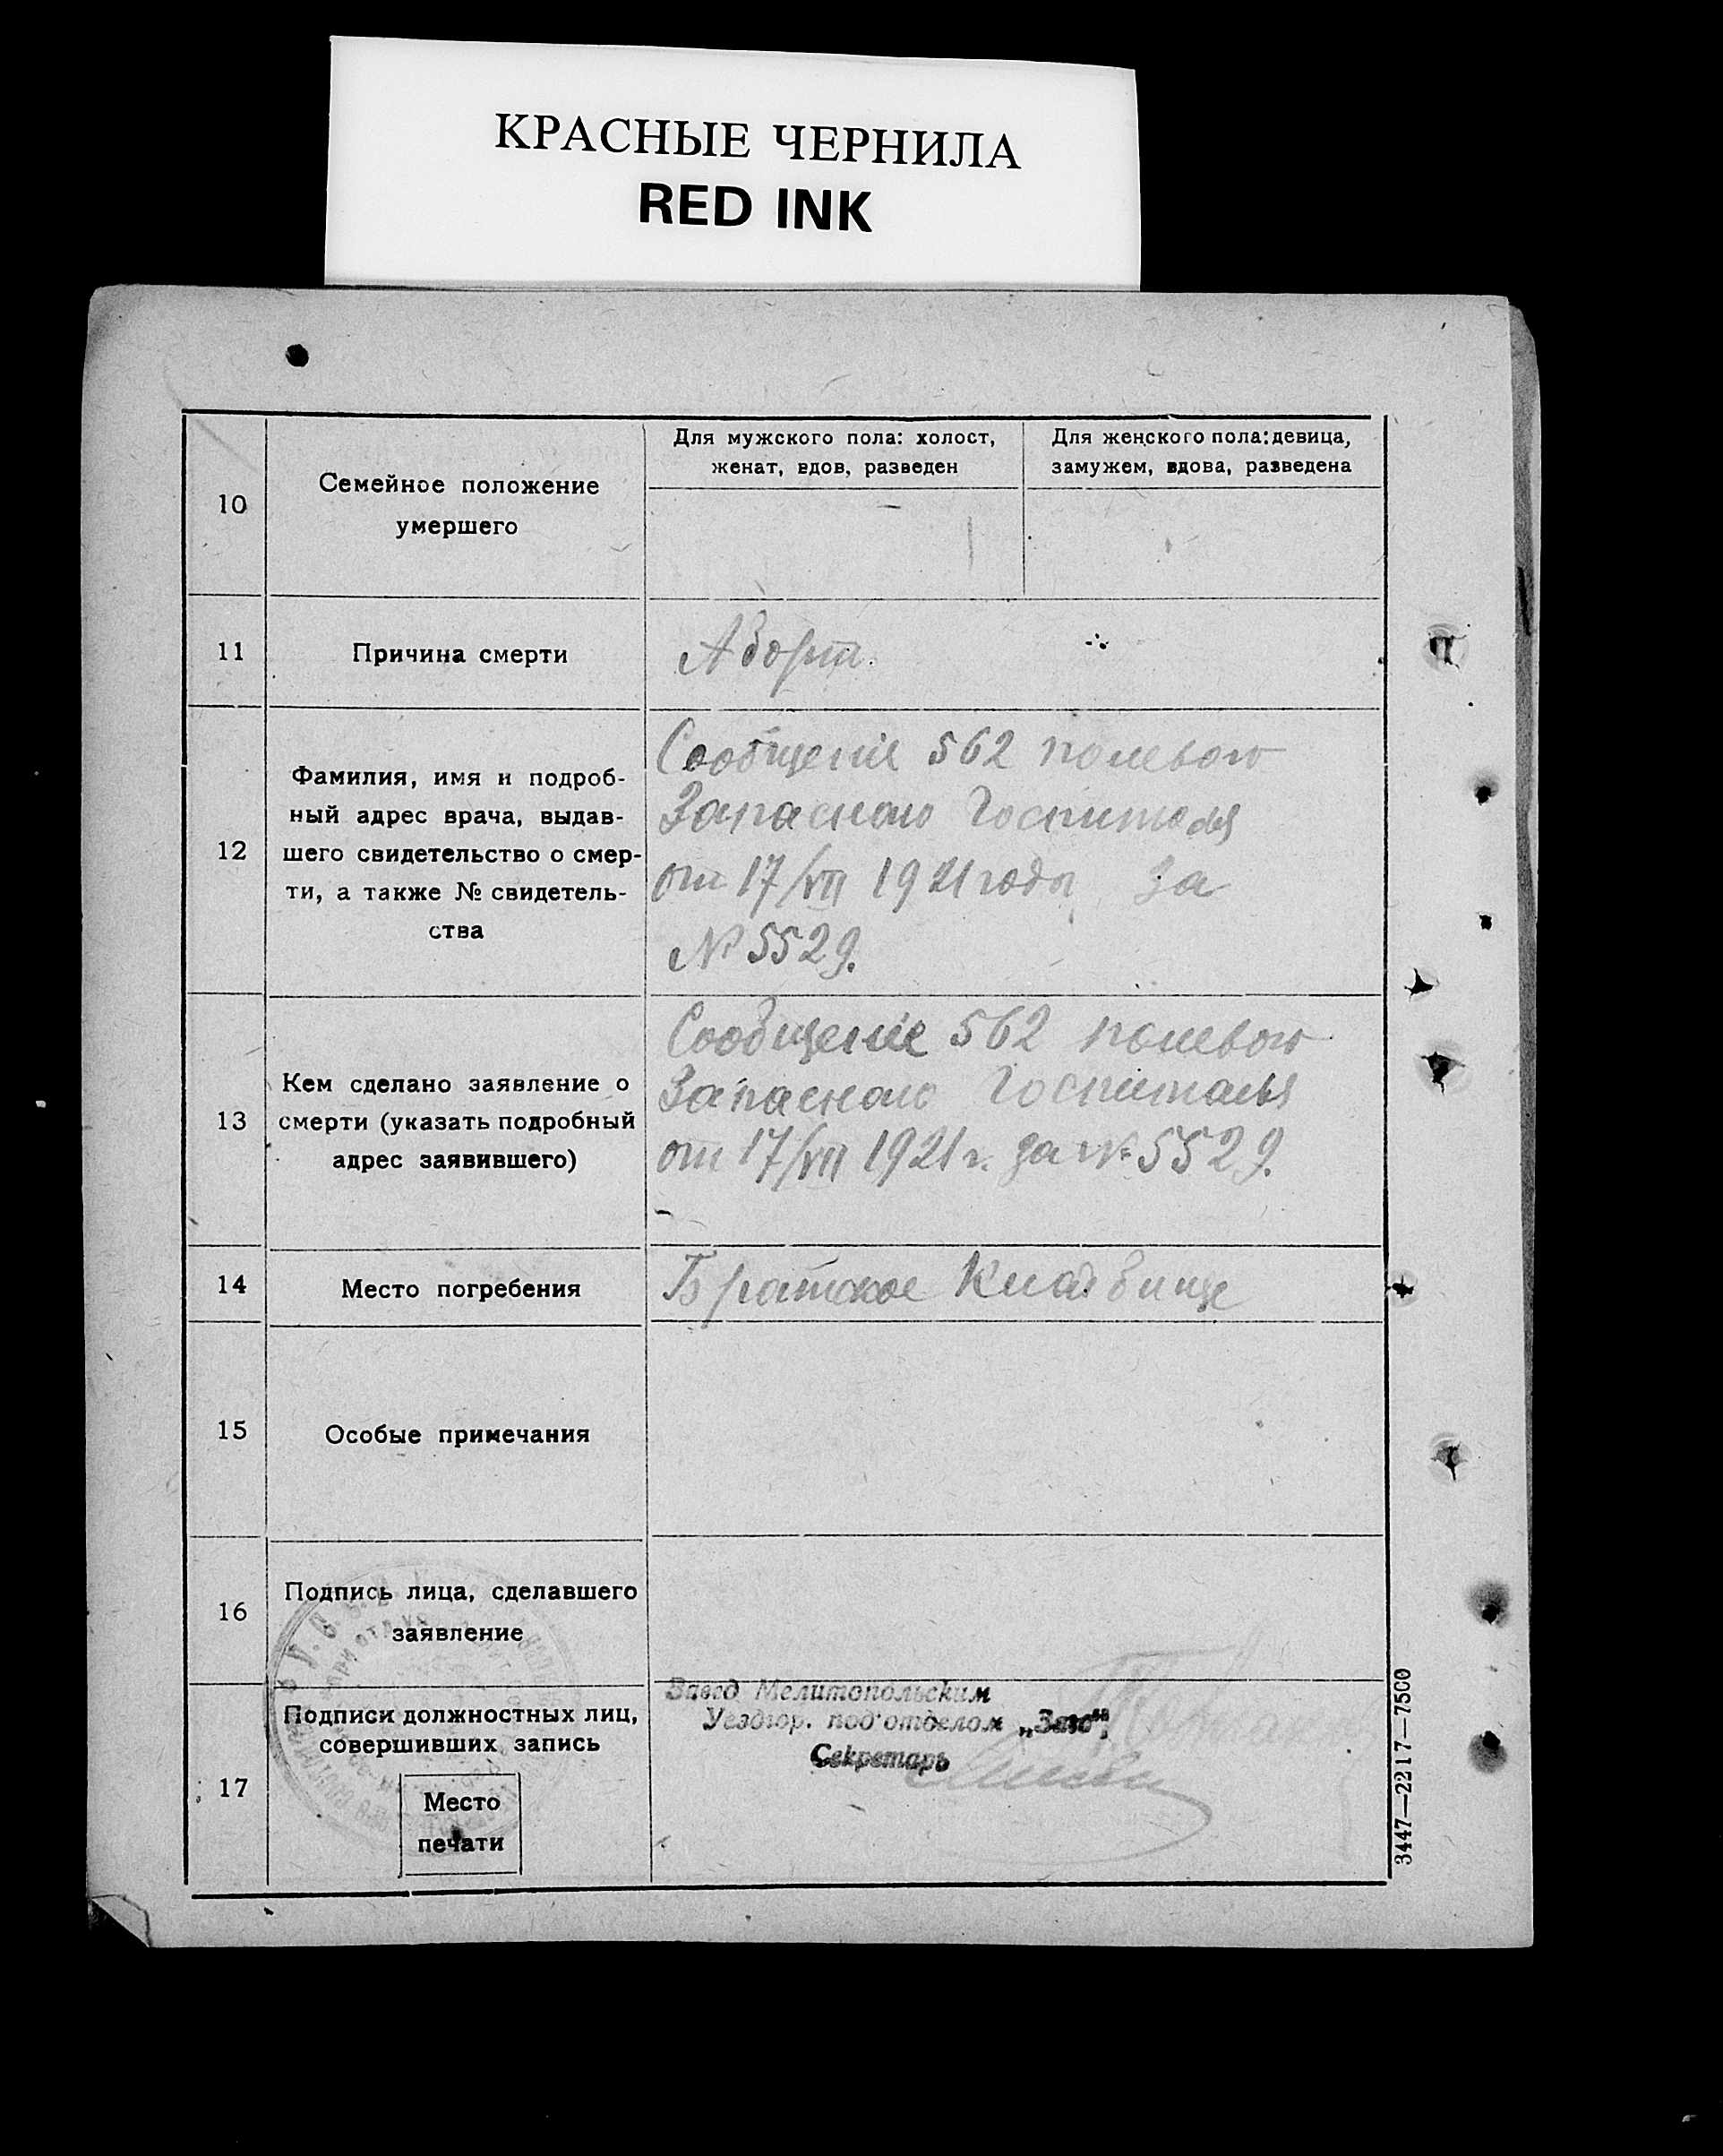 КРАСНЫЕ ЧЕРНИЛА
RED INK
10
Семейное положение
умершего
Для мужского пола: холост,
женат, вдов, разведен
Для женского пола: девица,
замужем, вдова, разведена
11
Причина смерти
Аборт.
12
Фамилия, имя и подроб-
ный адрес врача, выдав-
шего свидетельство о смер-
ти, а также № свидетель-
ства
Сообщение 562 полевого
Запасного Госпиталя
от 17/VII 1921 года за
№ 5529.
13
Кем сделано заявление о
смерти (указать подробный
адрес заявившего)
Сообщение 562 полевого
Запасного Госпиталя
от 17/VII 1921 г. за № 5529.
14
Место погребения
Братское Кладбище
15
Особые примечания
16
Подпись лица, сделавшего
заявление
17
Подписи должностных лиц,
совершивших запись
Место
печати
Завед. Мелитопольским
Уездгор. под'отделом „Загс"
Секретарь
3447—2217—7500